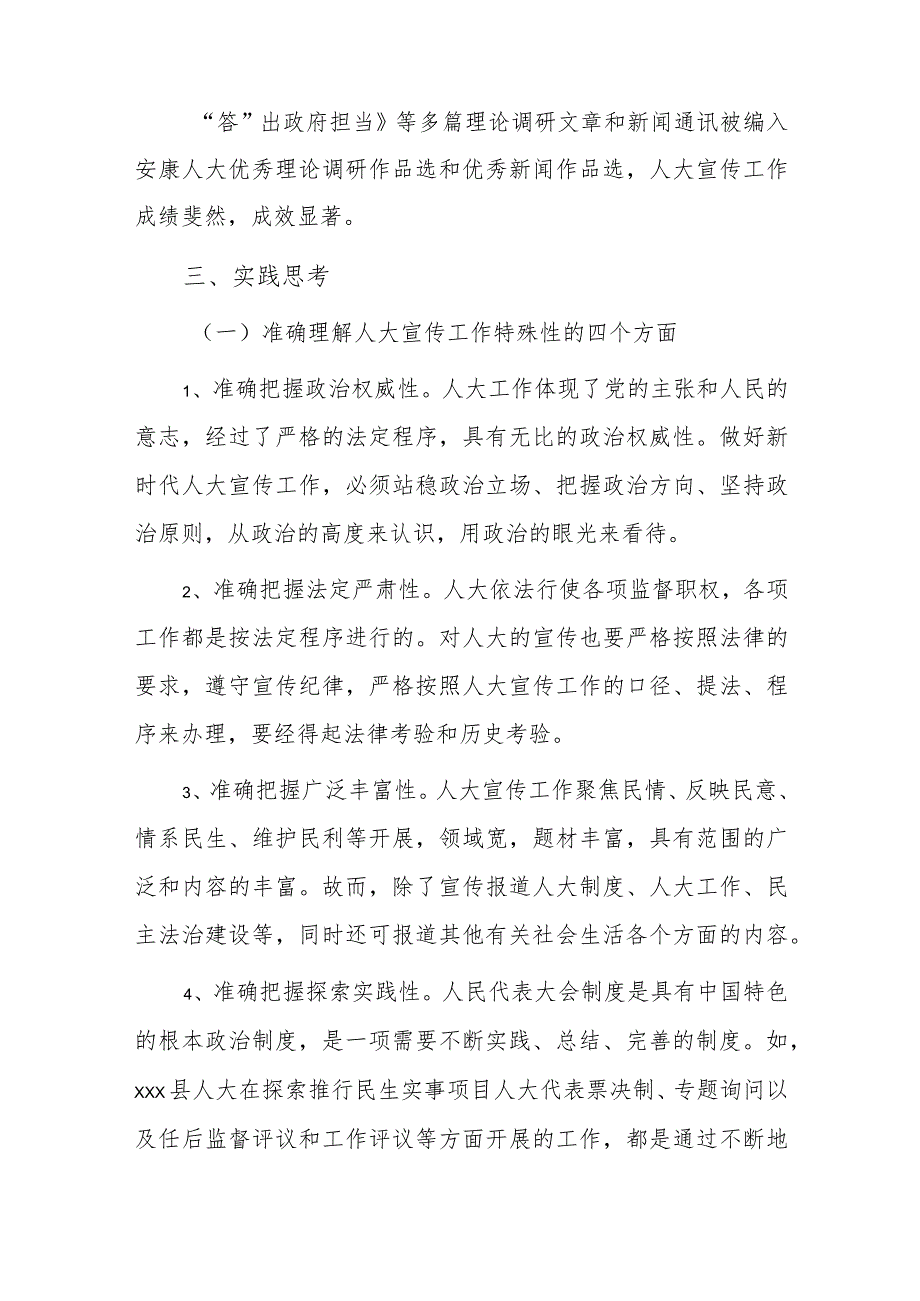 “答”出政府担当》等多篇理论调研文章和新闻通讯被编入
安康人大优秀理论调研作品选和优秀新闻作品选，人大宣传工作
成绩斐然，成效显著。
三、实践思考
（一）准确理解人大宣传工作特殊性的四个方面
1、准确把握政治权威性。人大工作体现了党的主张和人民的
意志，经过了严格的法定程序，具有无比的政治权威性。做好新
时代人大宣传工作，必须站稳政治立场、把握政治方向、坚持政
治原则，从政治的高度来认识，用政治的眼光来看待。
2、准确把握法定严肃性。人大依法行使各项监督职权，各项
工作都是按法定程序进行的。对人大的宣传也要严格按照法律的
要求，遵守宣传纪律，严格按照人大宣传工作的口径、提法、程
序来办理，要经得起法律考验和历史考验。
3、准确把握广泛丰富性。人大宣传工作聚焦民情、反映民意、
情系民生、维护民利等开展，领域宽，题材丰富，具有范围的广
泛和内容的丰富。故而，除了宣传报道人大制度、人大工作、民
主法治建设等，同时还可报道其他有关社会生活各个方面的内容。
4、准确把握探索实践性。人民代表大会制度是具有中国特色
的根本政治制度，是一项需要不断实践、总结、完善的制度。如，
xxx县人大在探索推行民生实事项目人大代表票决制、专题询问以
及任后监督评议和工作评议等方面开展的工作，都是通过不断地